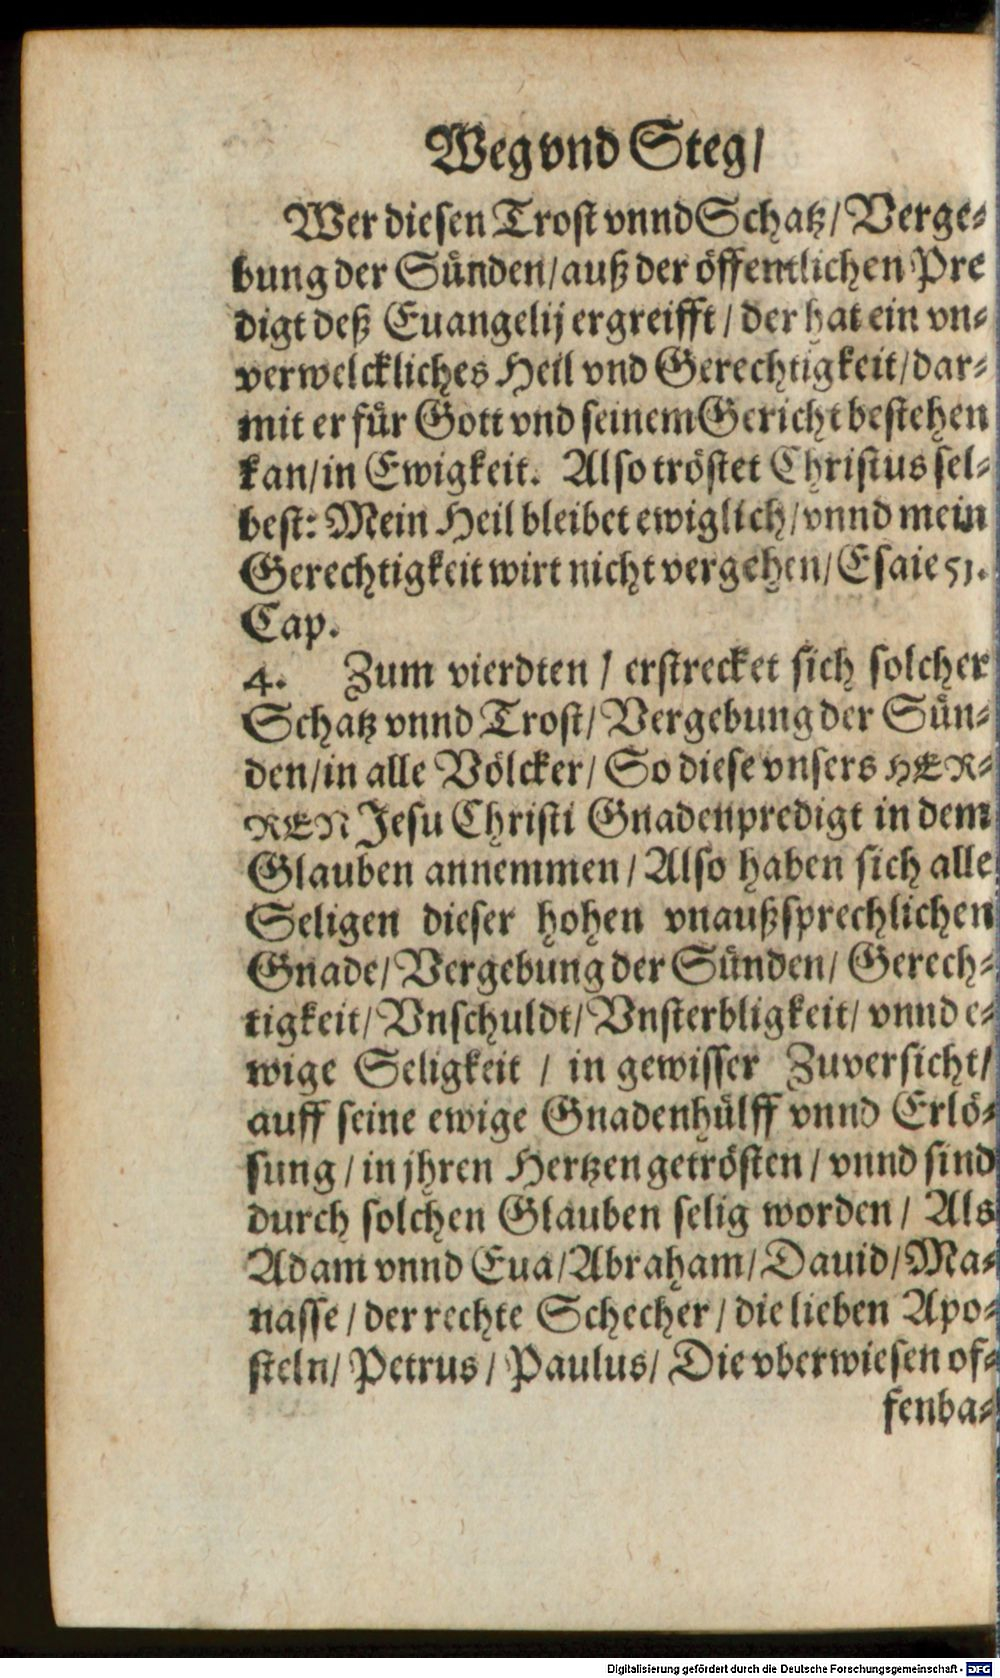 Weg vnd Steg/
Wer diesen Trost vnnd Schatz/ Verge-
bung der Sünden/ auß der öffentlichen Pre
digt deß Euangelij ergreifft / der hat ein vn-
verwelckliches Heil vnd Gerechtigkeit/ dar-
mit er für Gott vnd seinem Gericht bestehen
kan/ in Ewigkeit. Also tröstet Christus sel-
best: Mein Heil bleibet ewiglich/ vnnd mein
Gerechtigkeit wirt nicht vergehen/ Esaie 51.
Cap.
4. Zum vierdten / erstrecket sich solcher
Schatz vnnd Trost/ Vergebung der Sün-
den/ in alle Völcker/ So diese vnsers HER-
REN Jesu Christi Gnadenpredigt in dem
Glauben annemmen/ Also haben sich alle
Seligen dieser hohen vnaußsprechlichen
Gnade/ Vergebung der Sünden/ Gerech-
tigkeit/ Vnschuldt/ Vnsterbligkeit/ vnnd e-
wige Seligkeit / in gewisser Zuversicht/
auff seine ewige Gnadenhülff vnnd Erlö-
sung / in jhren Hertzen getrösten / vnnd sind
durch solchen Glauben selig worden / Als
Adam vnnd Eua/ Abraham/ Dauid/ Ma-
nasse / der rechte Schecher / die lieben Apo-
steln/ Petrus / Paulus/ Die vberwiesen of-
fenba-
Digitalisierung gefördert durch die Deutsche Forschungsgemeinschaft - DFG